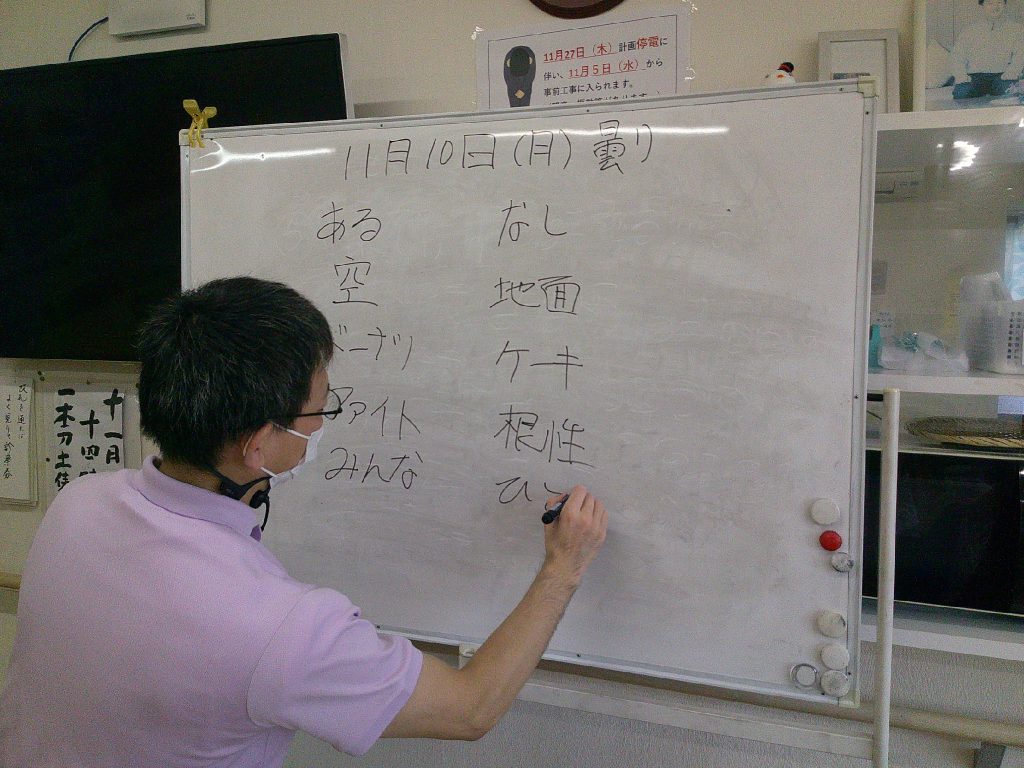 11月27日（木）計画停電に
伴い、11月5日（水）から
事前工事に入られます。
11月10日(月)曇り
ある なし
空 地面
ドーナツ ケーキ
ファイト 根性
みんな ひと
十一月
十四
一本刀土俵